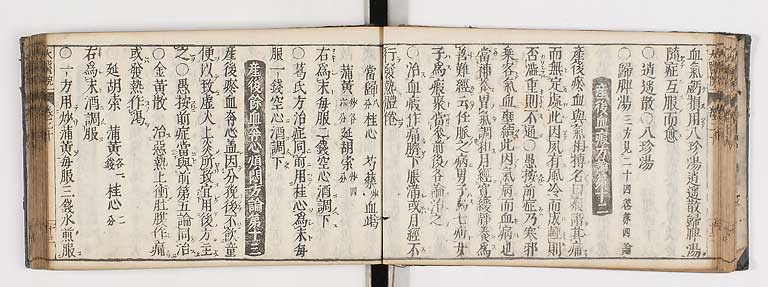 血氣虧損用八珍湯逍遙散歸脾湯
隨症互服而愈
○逍遙散○八珍湯
○歸脾湯 三方見二十四卷第四論
產後血瘕方論第十二
產後瘀血與氣相搏名曰瘕謂其痛
而無定處此因夙有風冷而成輕則
否澁重則不通○愚按前症乃寒邪
乗客氣血壅結此因氣病而血病也
當補養胃氣調和月經寬緩靜養爲
善難經云任脈之病男子爲七疝女
子爲瘕聚當參前後各論治之
○治血瘕作痛臍下脹滿或月經不
行發熱體倦
當歸 八分 桂心 芍藥 血竭
蒲黃 炒各六分 延胡索 炒四分
右爲末每服二錢空心酒調下
○葛氏方治症同前用桂心爲末每
服一錢空心酒調下
產後餘血奔心煩悶方論第十三
產後瘀血奔心蓋因分娩後不飲童
便以致虚火上炎前致血用後方主
之○愚按前症當與前第五論同治
○金黃散 治惡熱上衝肚腹作痛
或發熱作渇
延胡索 蒲黃 各一錢 桂心 二分
右爲末酒調服
○一方用炒蒲黃每服三錢水煎服